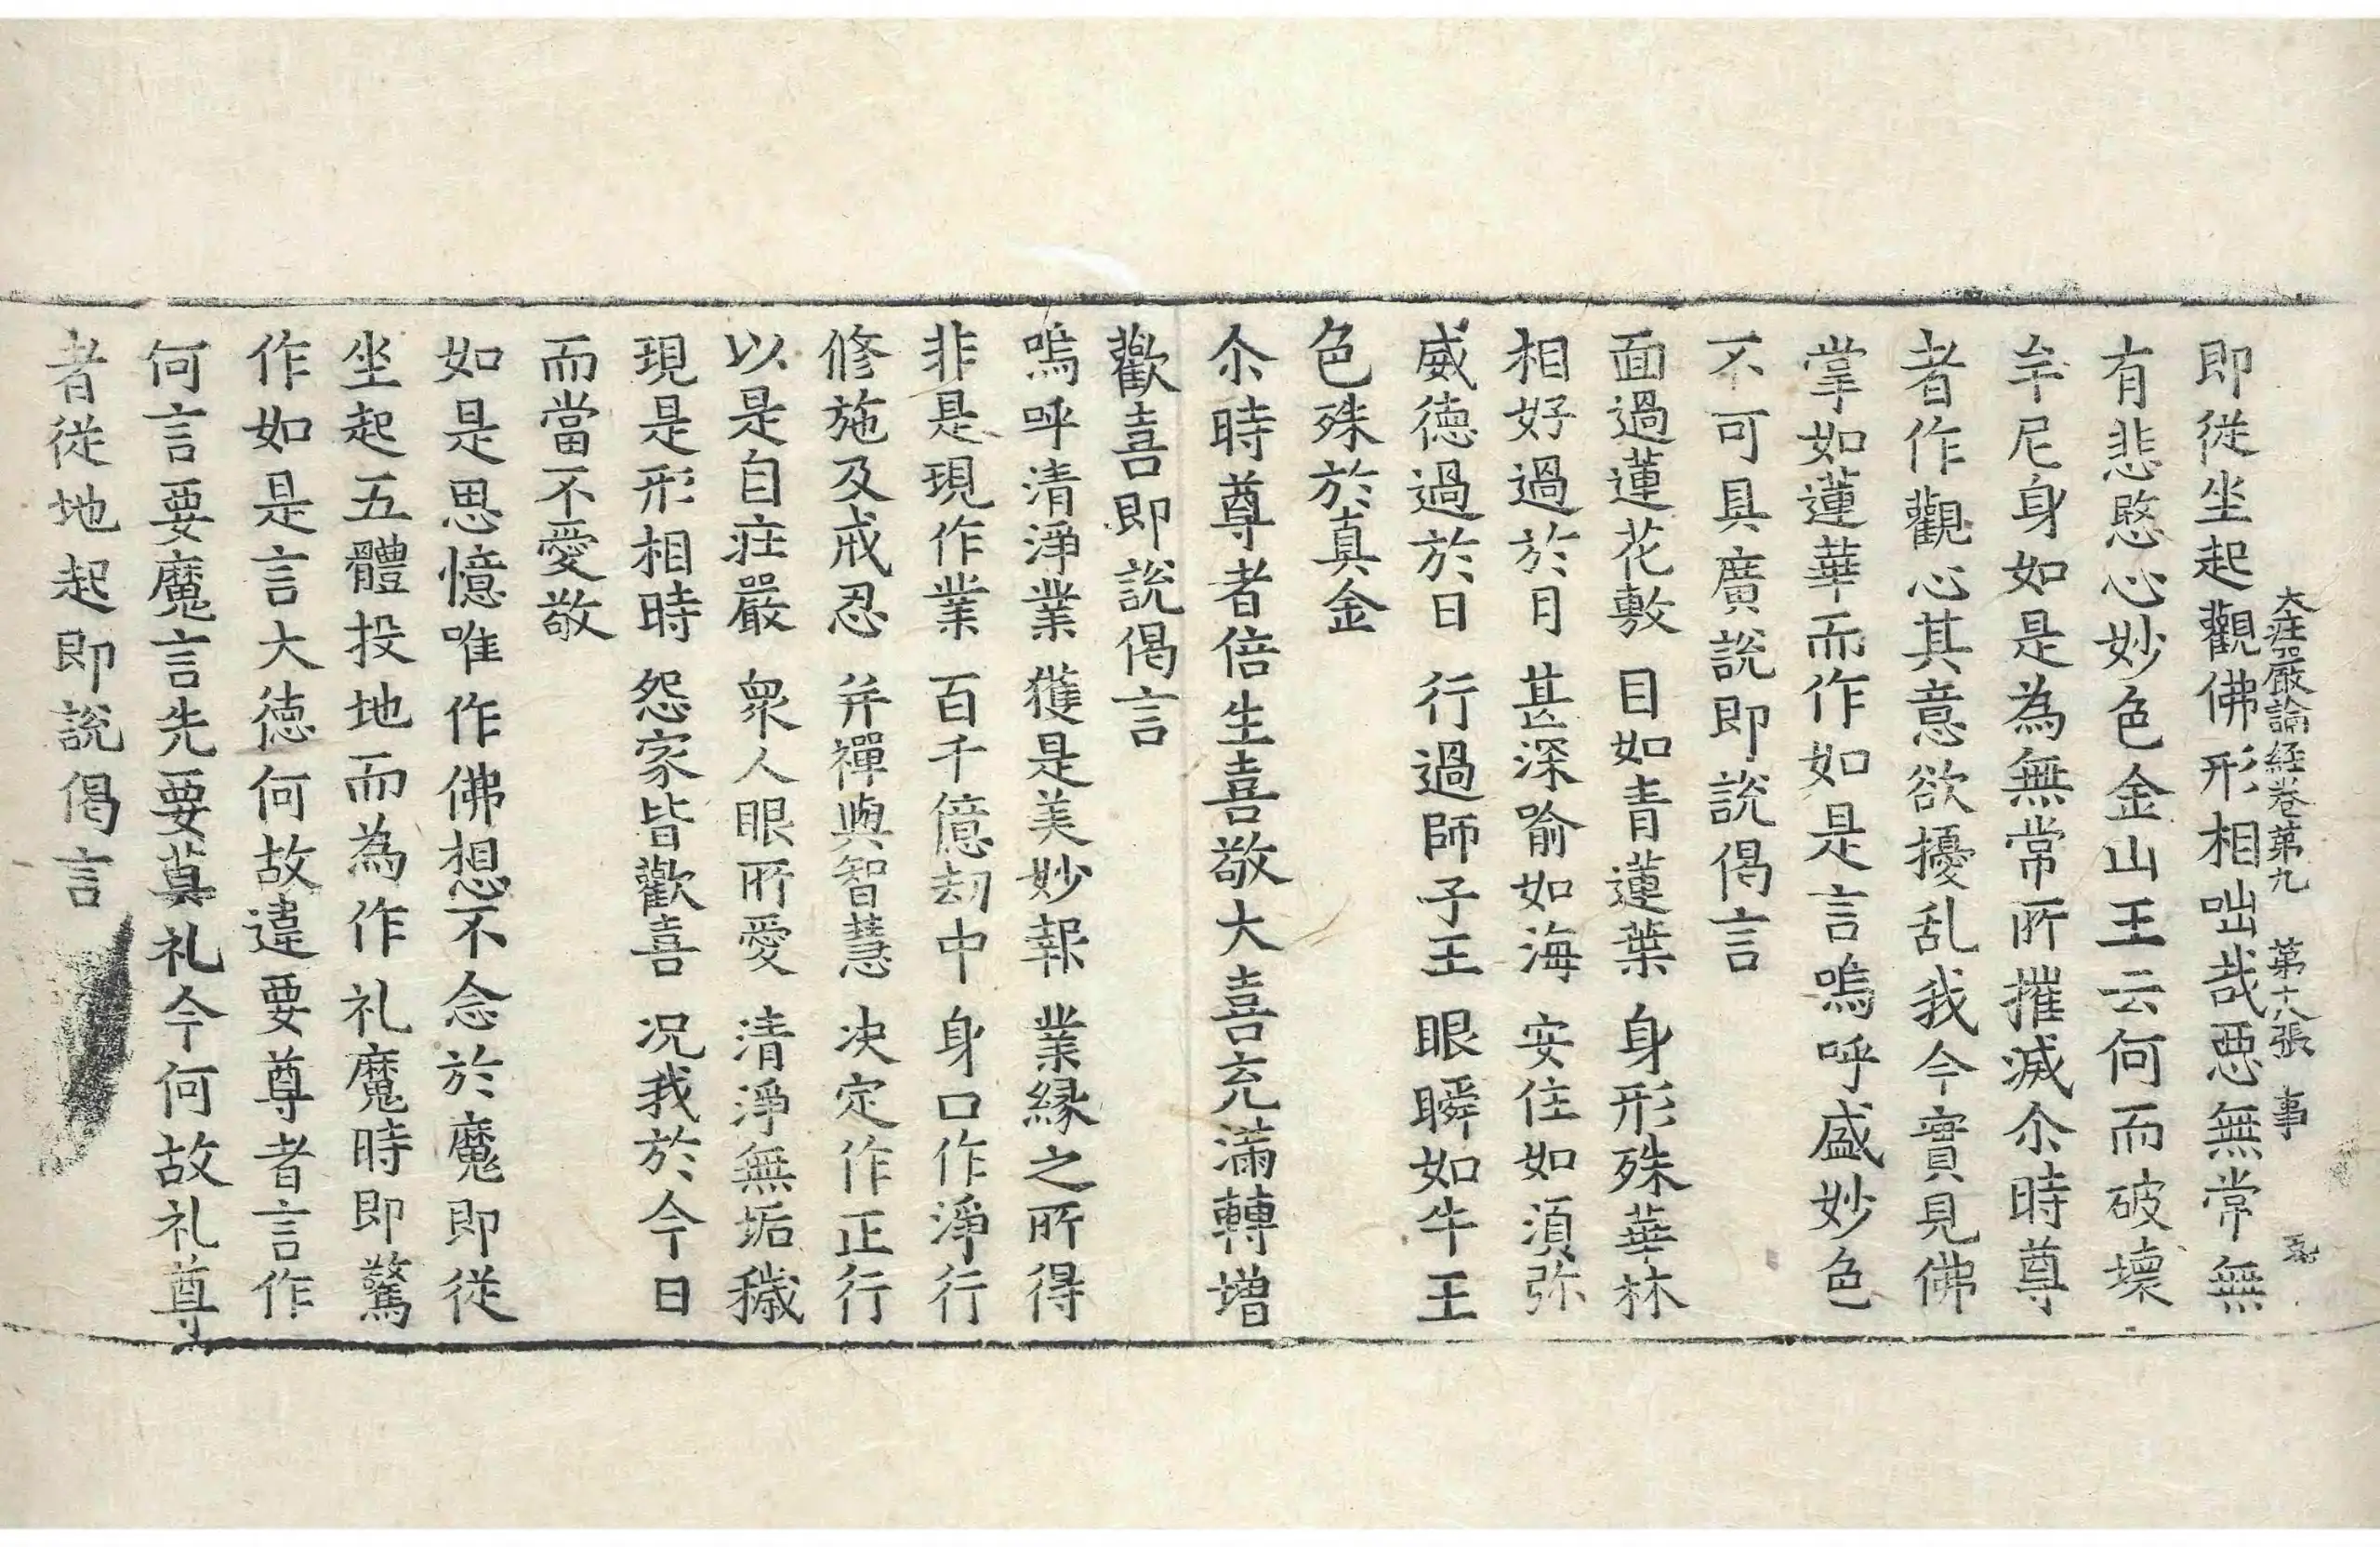 大莊嚴論経卷第九　第十八張　事
即從坐起觀佛形相咄哉惡無常無
有悲愍心妙色金山王云何而破壞
牟尼身如是為無常所摧滅尒時尊
者作觀心其意欲擾乱我今實見佛
掌如蓮華而作如是言嗚呼盛妙色
不可具廣說即說偈言
面過蓮花敷　目如青蓮葉　身形殊華林
相好過於月　甚深喻如海　安住如湏弥
威德過於日　行過師子王　眼瞬如牛王
色殊於真金
尒時尊者倍生喜敬大喜充滿轉增
歡喜即說偈言
嗚呼清淨業　獲是美妙報　業緣之所得
非是現作業　百千億劫中　身口作淨行
修施及戒忍　并禪與智慧　决定作正行
以是自莊嚴　衆人眼所愛　清淨無垢穢
現是形相時　怨家皆歡喜　况我於今日
而當不愛敬
如是思憶唯作佛想不念於魔即從
坐起五體投地而為作礼魔時即驚
作如是言大德何故違要尊者言作
何言要魔言先要莫礼今何故礼尊
者從地起即說偈言